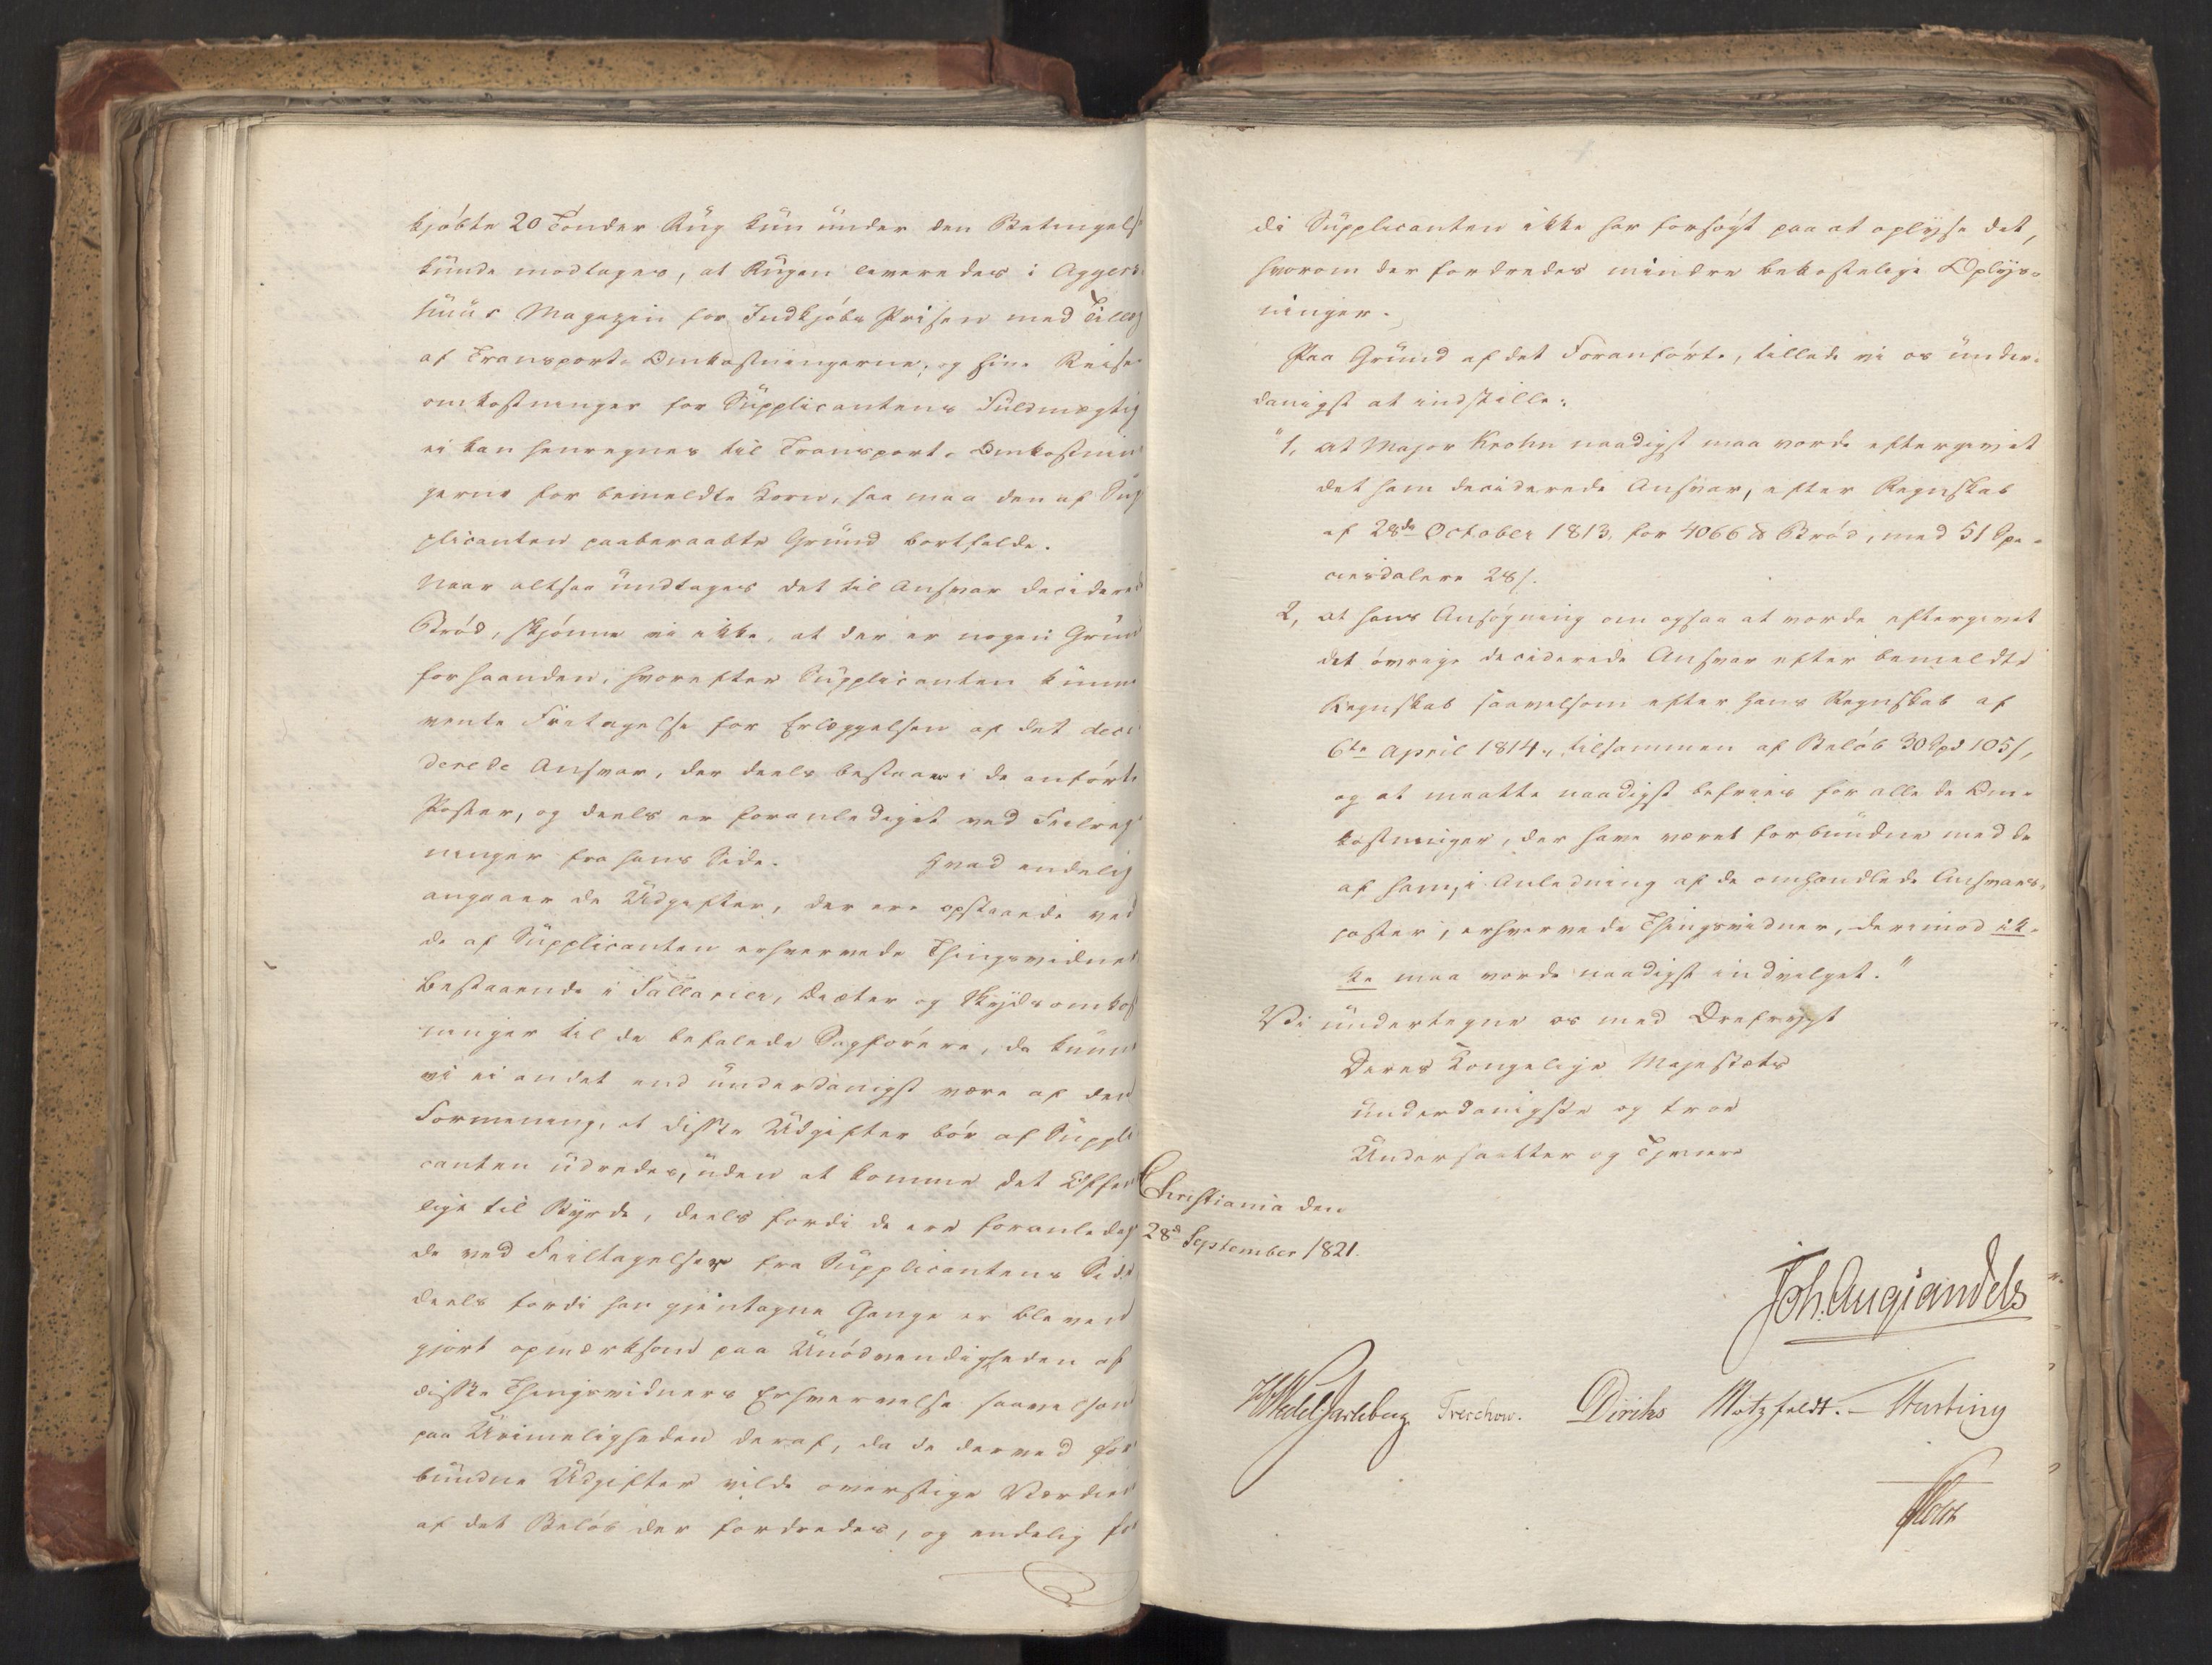 kjøbte 20 Tønder Rug kun under den Betingelse
kunde modtages, at Rugen leveredes i Aggers-
huus Magazin for Indkjøbs Prisen med Tillæg
af Transport-Omkostningerne, og hine Reise-
omkostninger for Supplicantens Fuldmægtig
ei kan henregnes til Transport-Omkostnin
gerne for bemeldte Korn, saa maa den af Sup
plicanten paaberaabte Grund bortfalde.
Naar altsaa undtages det til Ansvar decidered
Brød, skjønne vi ikke, at der er nogen Grund
forhaanden, hvorefter Supplicanten kunne
vente Fritagelse for Erlæggelsen af det deci
derede Ansvar, der deels bestaaer i de anførte
Poster, og deels er foranlediget ved Feilreg
ninger fra hans Side. Hvad endelig
angaaer de Udgifter, der ere opstaaede ved
de af Supplicanten erhvervede Thingsvidner
bestaaende i Sallarier, Diæter og Skydsomkost
ninger til de befalede Sagførere, da kunne
vi ei andet end underdanigst være af den
Formening, at disse Udgifter bør af Suppli
canten udredes, uden at komme det Offent
lige til Byrde, deels fordi de ere foranledig
de ved Feiltagelser fra Supplicantens Side
deels fordi han gjentagne Gange er bleven
gjort opmærksom paa Unødvendigheden af
disse Thingsvidners Erhvervelse saavelsom
paa Urimeligheden deraf, da de derved for
bundne Udgifter vilde overstige Værdien
af det Beløb der fordredes, og endelig for
di Supplicanten ikke har forsøgt paa at oplyse det,
hvorom der fordredes mindre bekostelige Oplys-
ninger.
Paa Grund af det Foranførte, tillade vi os under-
danigst at indstille:
"1, at Major Krohn naadigst maa vorde eftergivet
det ham deciderede Ansvar, efter Regnskab
af 28de October 1813, for 4066 ℔ Brød, med 51 Spe-
ciesdalere 28 s.
2, at hans Ansøgning om ogsaa at vorde eftergivet
det øvrige deciderede Ansvar efter bemeldte
Regnskab saavelsom efter hans Regnskab af
6te April 1814, tilsammen af Beløb 30 Spd 105 s,
og at maatte naadigst befries for alle de Om-
kostninger, der have været forbundne med de
af ham, i Anledning af de omhandlede Ansvars-
poster, erhvervede Thingsvidner, derimod ik-
ke maa vorde naadigst indvilget."
Vi undertegne os med Ærefrygt
Deres Kongelige Majestæts
underdanigste og troe
Undersaatter og Tjenere
Christiania den
28de September 1821.
Joh. Aug Sandels
HWedel Jarlsberg Treschow. Diriks Motzfeldt. Hartung
Holst